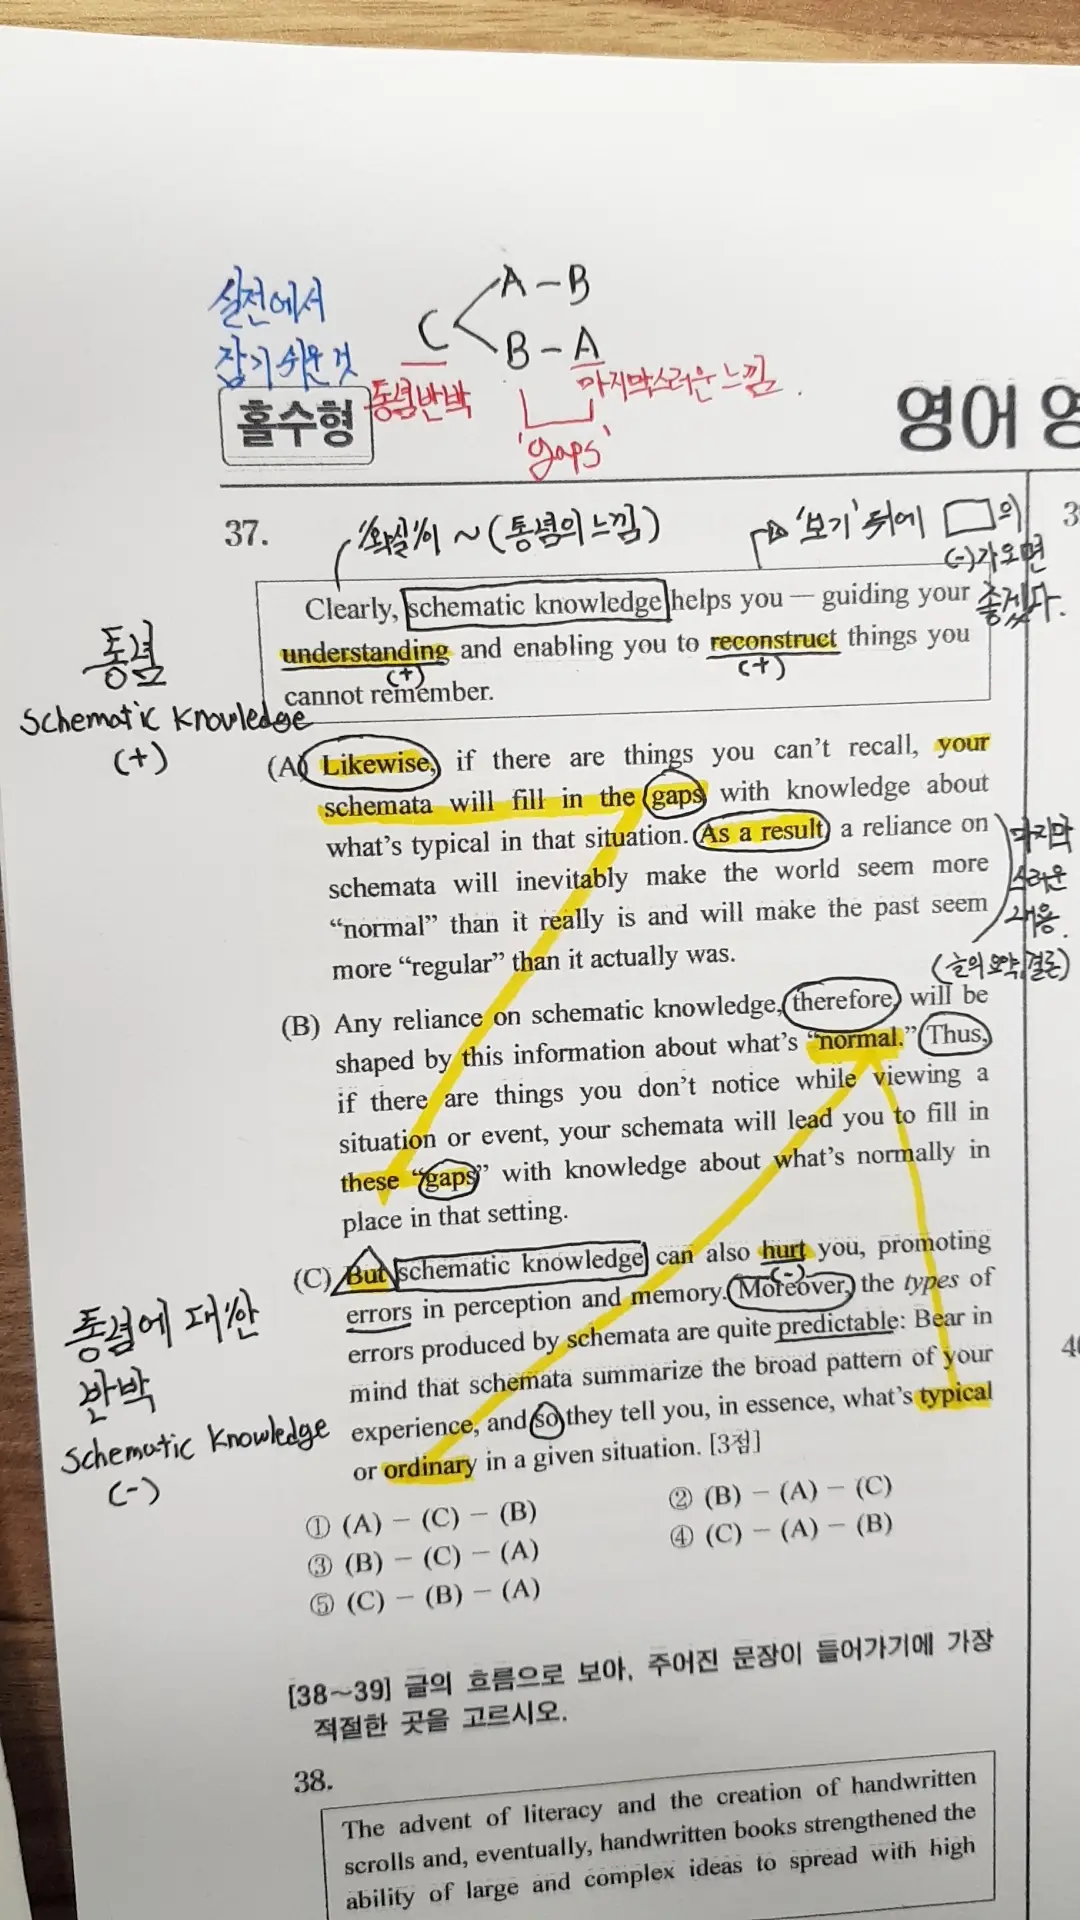 실전에서
잡기 쉬운 것
C
A - B
B - A
통념반박
마지막스러운 느낌.
'gaps'
홀수형
영어 영
37.
'확실'이 ~ (통념의 느낌)
'보기' 뒤에 □의
(-)가 오면
좋겠다.
Clearly, schematic knowledge helps you — guiding your
understanding and enabling you to reconstruct things you
(+) (+)
cannot remember.
통념
Schematic Knowledge
(+)
(A) Likewise, if there are things you can't recall, your
schemata will fill in the gaps with knowledge about
what's typical in that situation. As a result, a reliance on
schemata will inevitably make the world seem more
"normal" than it really is and will make the past seem
more "regular" than it actually was.
마지막
스러운
내용.
(글의 요약, 결론)
(B) Any reliance on schematic knowledge, therefore, will be
shaped by this information about what's "normal." Thus,
if there are things you don't notice while viewing a
situation or event, your schemata will lead you to fill in
these "gaps" with knowledge about what's normally in
place in that setting.
(C) But schematic knowledge can also hurt you, promoting
(-)
errors in perception and memory. Moreover, the types of
errors produced by schemata are quite predictable: Bear in
mind that schemata summarize the broad pattern of your
experience, and so they tell you, in essence, what's typical
or ordinary in a given situation. [3점]
통념에 대한
반박
Schematic Knowledge
(-)
① (A) － (C) － (B)
② (B) － (A) － (C)
③ (B) － (C) － (A)
④ (C) － (A) － (B)
⑤ (C) － (B) － (A)
[38～39] 글의 흐름으로 보아, 주어진 문장이 들어가기에 가장
적절한 곳을 고르시오.
38.
The advent of literacy and the creation of handwritten
scrolls and, eventually, handwritten books strengthened the
ability of large and complex ideas to spread with high